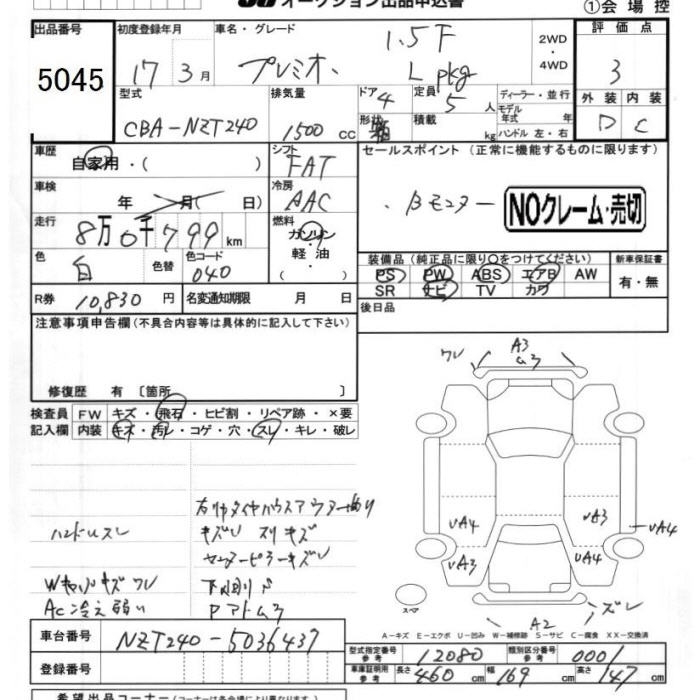 オークション出品申込書
①会場控
出品番号 初度登録年月 車名・グレード 評価点
5045 17年 3月 プレミオ 1.5F L pkg 2WD・4WD 3
型式 排気量 ドア 4 定員 5人 ディーラー・並行 外装 内装
CBA-NZT240 1500cc 形状 箱 積載 kg モデル年式 年 ハンドル 左・右 D C
車歴 自家用・( ) シフト FAT セールスポイント (正常に機能するものに限ります)
車検 年 月( 日) 冷房 AAC Bモニター NOクレーム・売切
走行 8万0千799km 燃料 ガソリン・軽油・( )
色 白 色替 色コード 040 装備品(純正品に限り○をつけてください) 新車保証書
PS PW ABS エアB AW 有・無
SR ナビ TV カワ
R券 10,830円 名変通知期限 月 日 後日品
注意事項申告欄(不具合内容等は具体的に記入して下さい)
修復歴 有 [箇所 ]
検査員記入欄 FW キズ・飛石・ヒビ割・リペア跡・×要
内装 キズ・汚レ・コゲ・穴・スレ・キレ・破レ
ワレ A3
ハンドルスレ
キズ
センターピラーキズ
Ac冷え弱い
UA4 UA3 UA4
UA3 UA4
スペア
A2 ズレ
A-キズ E-エクボ U-凹み W-補修跡 S-サビ C-腐食 XX-交換済
車台番号 NZT240-5036437
型式指定番号 参考 12080 類別区分番号 参考 0001
登録番号 車庫証明用 参考 長さ 460cm 幅 169cm 高さ 147cm
希望出品コーナー